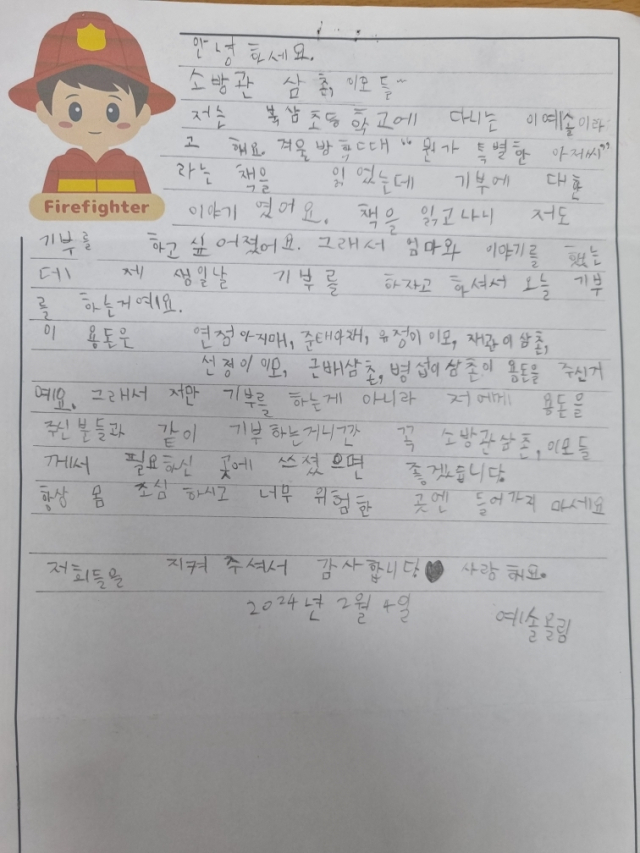 안녕하세요.
소방관 삼촌, 이모들~
저는 북삼초등학교에 다니는 이예솔이라
고 해요. 겨울방학때 "뭔가 특별한 아저씨"
라는 책을 읽었는데 기부에 대한
이야기 였어요. 책을 읽고나니 저도
Firefighter
기부를 하고 싶어졌어요. 그래서 엄마와 이야기를 했는
데 제 생일날 기부를 하자고 하셔서 오늘 기부
를 하는거예요.
이 용돈은 연점아지매, 준태아재, 유정이이모, 재관이삼촌,
선정이이모, 근배삼촌, 병섭이삼촌이 용돈을 주신거
예요. 그래서 저만 기부를 하는게 아니라 저에게 용돈을
주신분들과 같이 기부하는거니깐 꼭 소방관삼촌, 이모들
께서 필요하신 곳에 쓰셨으면 좋겠습니당
항상 몸 조심하시고 너무 위험한 곳엔 들어가지 마세요
저희들을 지켜 주셔서 감사합니당♥ 사랑해요.
2024년 2월 4일 예솔올림